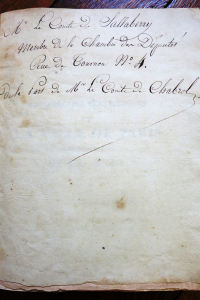 Mr le Comte de Sallaberry
Membre de la Chambre des Députés
Rue de Tournon No 4.
De la part de Mr le Comte de Chabrol